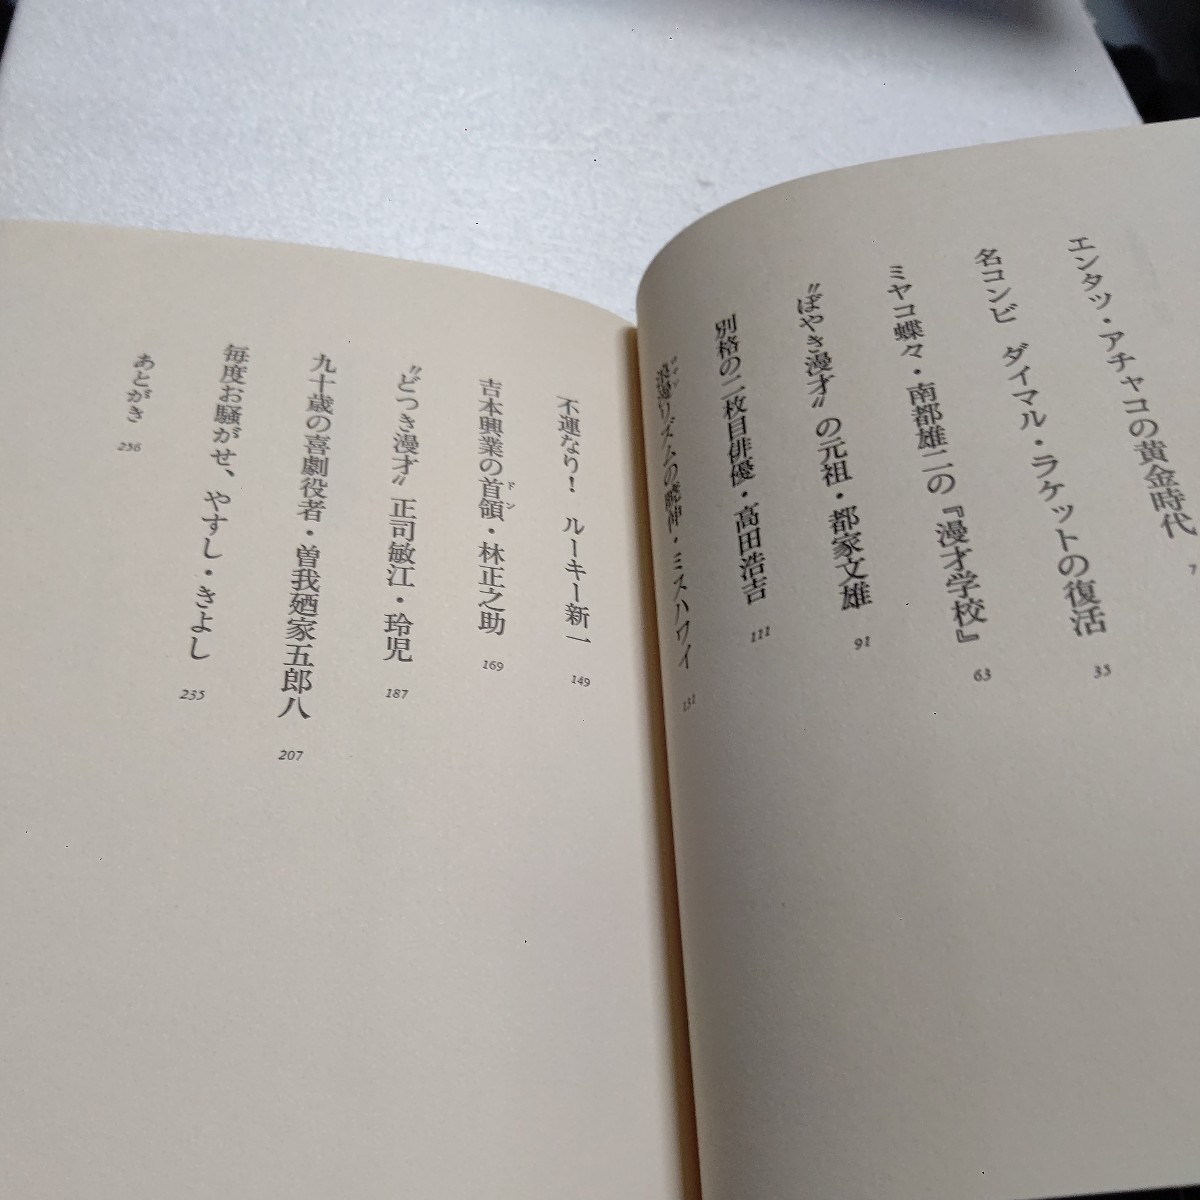 エンタツ・アチャコの黄金時代 7
名コンビ ダイマル・ラケットの復活 35
ミヤコ蝶々・南都雄二の『漫才学校』 63
〝ぼやき漫才〟の元祖・都家文雄 91
別格の二枚目俳優・高田浩吉 111
リズムの ・ミスハワイ 131
不運なり! ルーキー新一 149
吉本興業の首領・林正之助 169
ドン
〝どつき漫才〟正司敏江・玲児 187
九十歳の喜劇役者・曽我廼家五郎八 207
毎度お騒がせ、やすし・きよし 235
あとがき 256